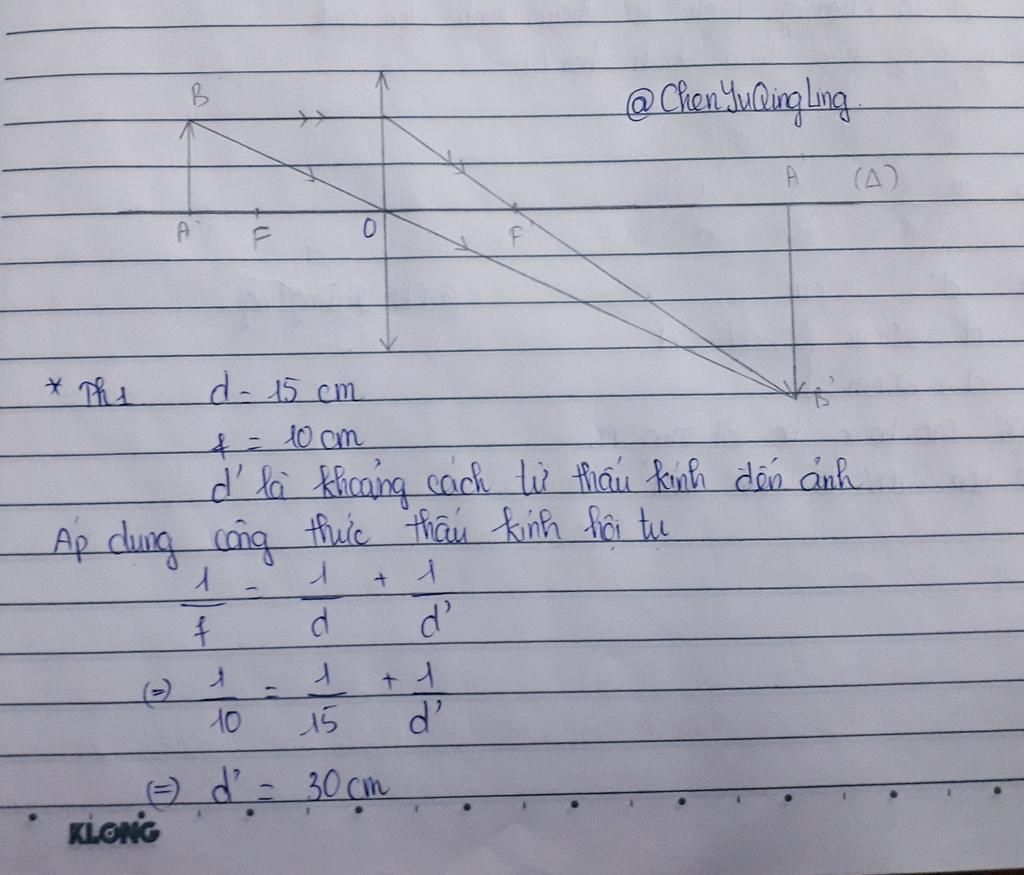 B
@ChenYuQingLing.
A' (Δ)
A F O F'
B'
* Th1 d = 15 cm
f = 10 cm
d' là khoảng cách từ thấu kính đến ảnh
Áp dụng công thức thấu kính hội tụ
1/f = 1/d + 1/d'
(=) 1/10 = 1/15 + 1/d'
(=) d' = 30 cm
KLONG